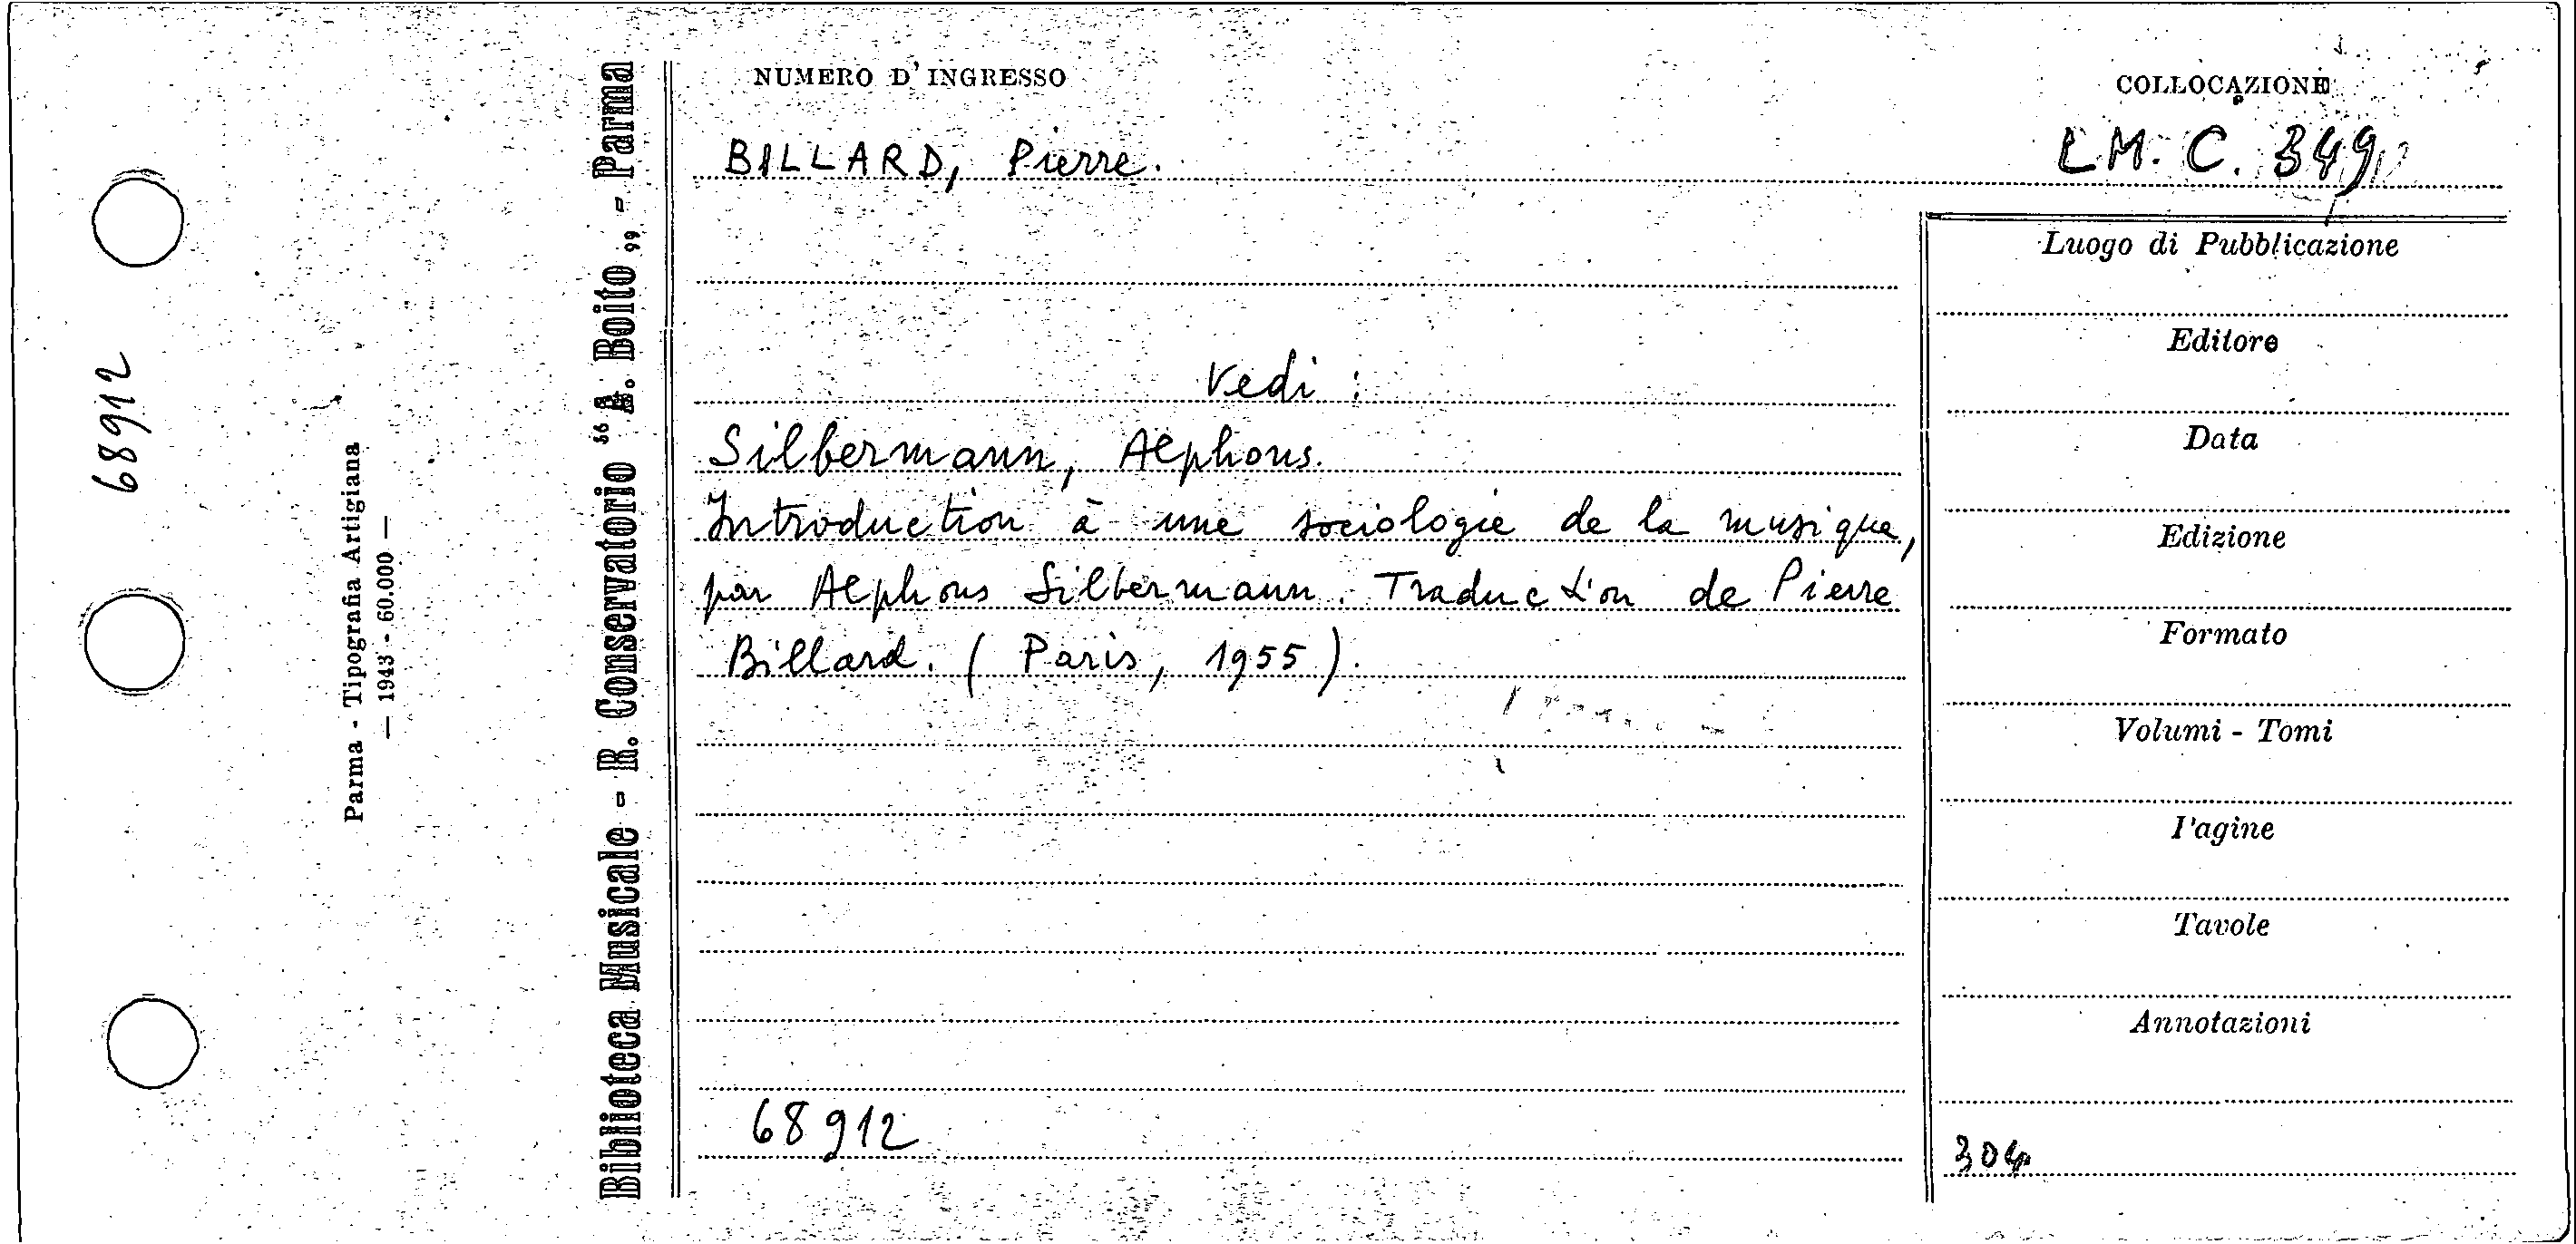 NUMERO D' INGRESSO
COLLOCAZIONE
BILLARD, Pierre.
L.M. C. 349
Vedi :
Silbermann, Alphons.
Introduction à une sociologie de la musique,
par Alphons Silbermann. Traduction de Pierre
Billard. ( Paris, 1955 ).
68912
Luogo di Pubblicazione
Editore
Data
Edizione
Formato
Volumi - Tomi
Pagine
Tavole
Annotazioni
304
Biblioteca Musicale - R. Conservatorio “ A. Boito „ - Parma
Parma - Tipografia Artigiana
— 1943 - 60.000 —
68912